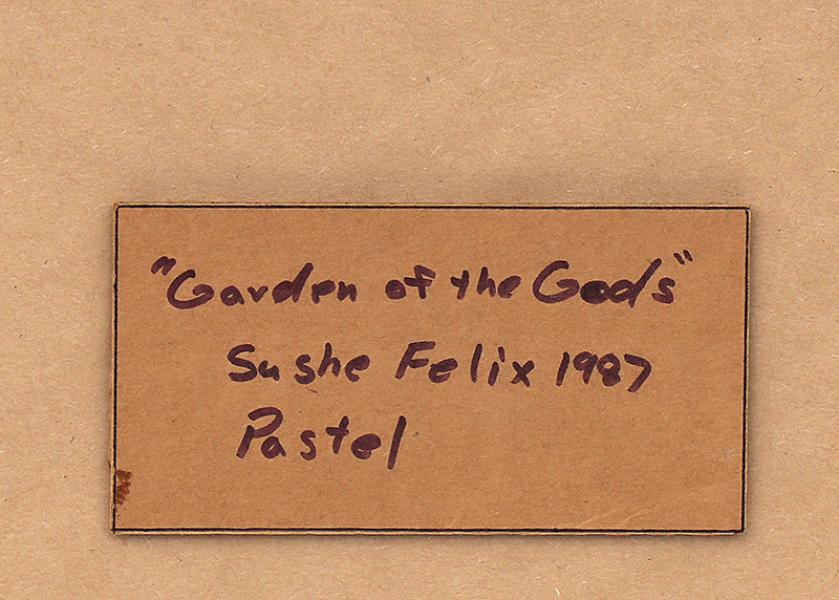 "Garden of the Gods"
Sushe Felix 1987
Pastel